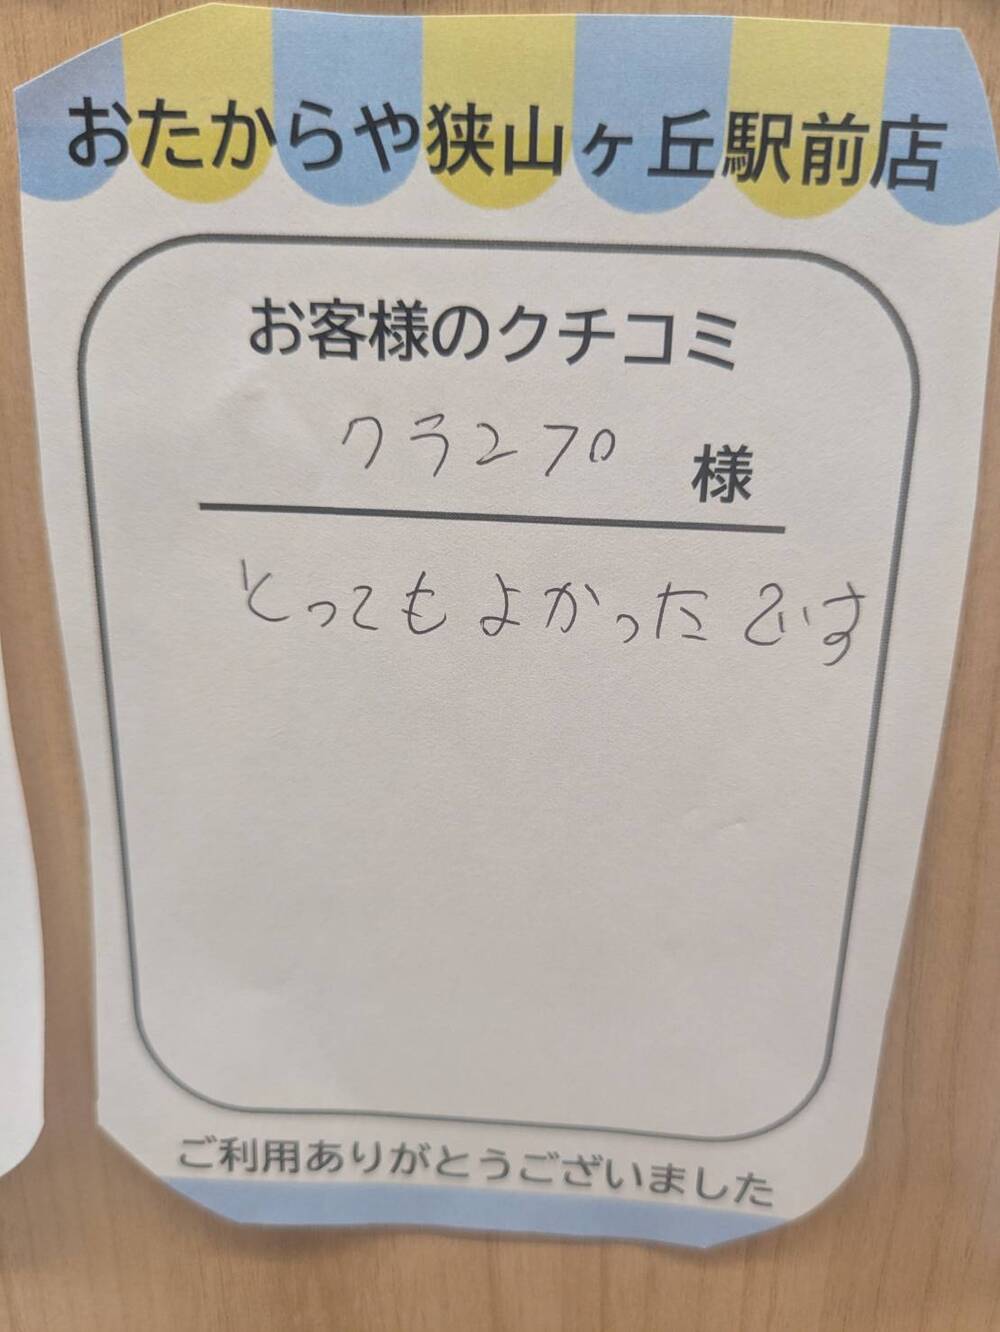 おたからや狭山ヶ丘駅前店
お客様のクチコミ
クランプ 様
とってもよかったです
ご利用ありがとうございました